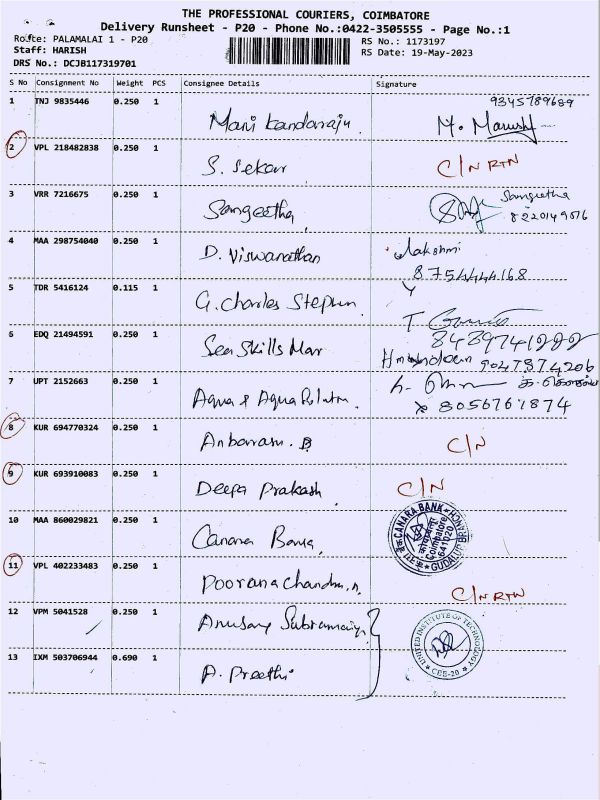 THE PROFESSIONAL COURIERS, COIMBATORE
Delivery Runsheet - P20 - Phone No.:0422-3505555 - Page No.:1
Route: PALAMALAI 1 - P20
RS No.: 1173197
Staff: HARISH
RS Date: 19-May-2023
DRS No.: DCJB117319701
S No Consignment No Weight PCS Consignee Details Signature
9345789689
1 TNJ 9835446 0.250 1 Mani kandaraju M.
2 VPL 218482838 0.250 1 S. Sekar C/N RTN
3 VRR 7216675 0.250 1 Sangeetha Sangeetha
8220149076
4 MAA 298754040 0.250 1 D. Viswanathan Lakshmi
8754444168
5 TDR 5416124 0.115 1 G. Charles Stephen T
8489741222
6 EDQ 21494591 0.250 1 Sea Skills Mar 9047374206
7 UPT 2152663 0.250 1 Aqua & Aqua
8056767874
8 KUR 694770324 0.250 1 Anbarasu. B C/N
9 KUR 693910083 0.250 1 Deepa Prakash C/N
10 MAA 860029821 0.250 1 Canara Bank
CANARA BANK
Coimbatore
641020
GUDALUR BRANCH
11 VPL 402233483 0.250 1 Poorana Chandran. C/N RTN
12 VPM 5041528 0.250 1 Anusay Subramaniyan
13 IXM 503706944 0.690 1 A. Preethi
UNITED INSTITUTE OF TECHNOLOGY
CBE-20